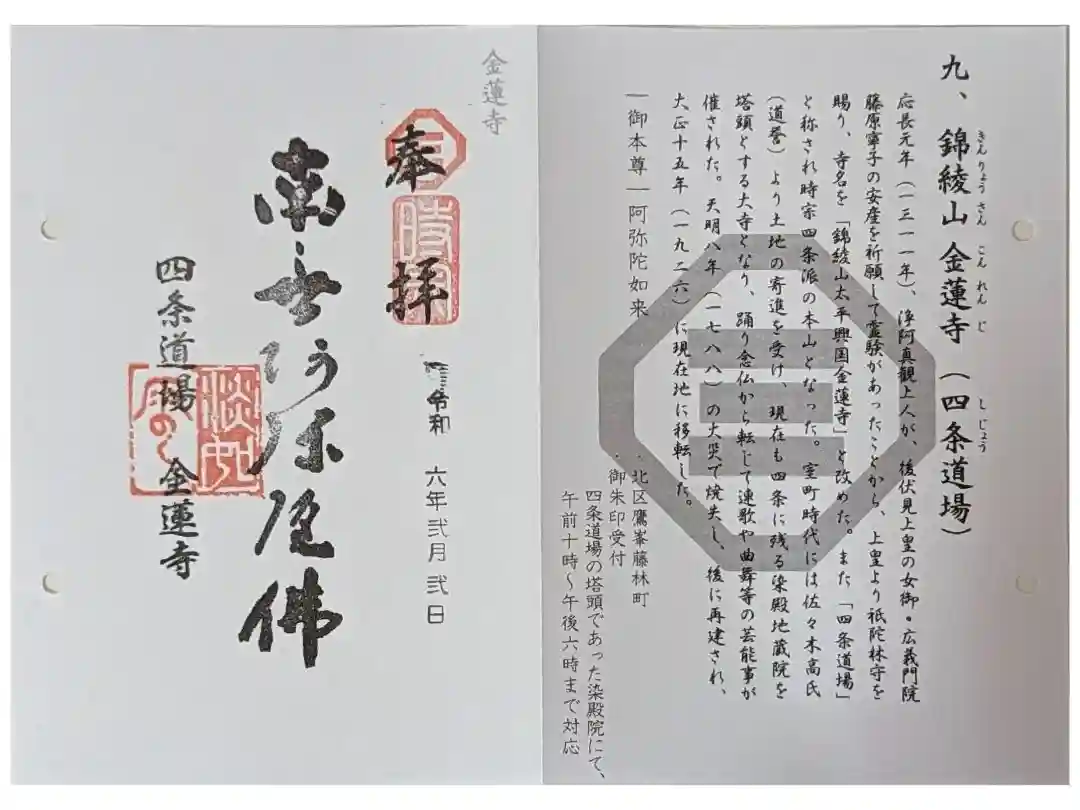 九、錦綾山 金蓮寺(四条道場)
きんりょうさん こんれんじ しじょう
応長元年(一三一一年)、浄阿真観上人が、後伏見上皇の女御・広義門院
藤原寧子の安産を祈願して霊験があったことから、上皇より祇陀林寺を
賜り、寺名を「錦綾山太平興国金蓮寺」と改めた。また「四条道場」
と称され時宗四条派の本山となった。室町時代には佐々木高氏
(道誉)より土地の寄進を受け、現在も四条に残る染殿地蔵院を
塔頭とする大寺となり、踊り念仏から転じて連歌や曲舞等の芸能事が
催された。天明八年(一七八八)の大災で焼失し、後に再建され、
大正十五年(一九二六)に現在地に移転した。
―御本尊―阿弥陀如来
・北区鷹峯藤林町
・御朱印受付
四条道場の塔頭であった染殿院にて、
午前十時~午後六時まで対応
金蓮寺
奉拝
時宗
令和 六年弐月弐日
南無阿弥陀佛
四条道場 金蓮寺